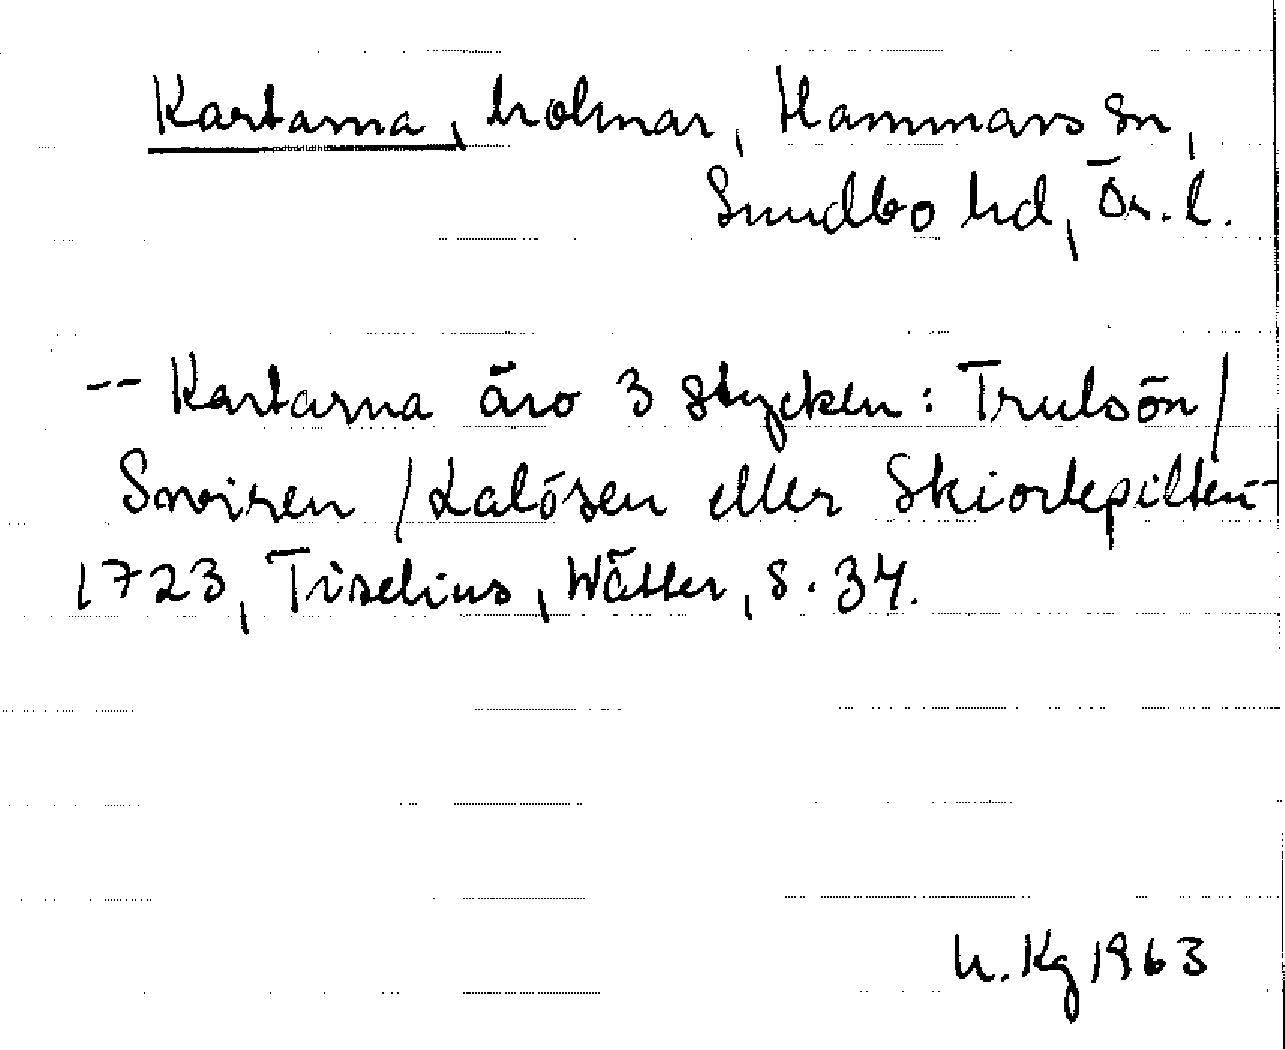 Kartarna, holmar, Hammars sn,
Sundbo hd, Ör. l.
-- Kartarna äro 3 stycken: Trulsön /
Snoiren / Kalösen eller Skiortepilten --
1723, Tiselius, Wätter, s. 34.
h. Kg 1963